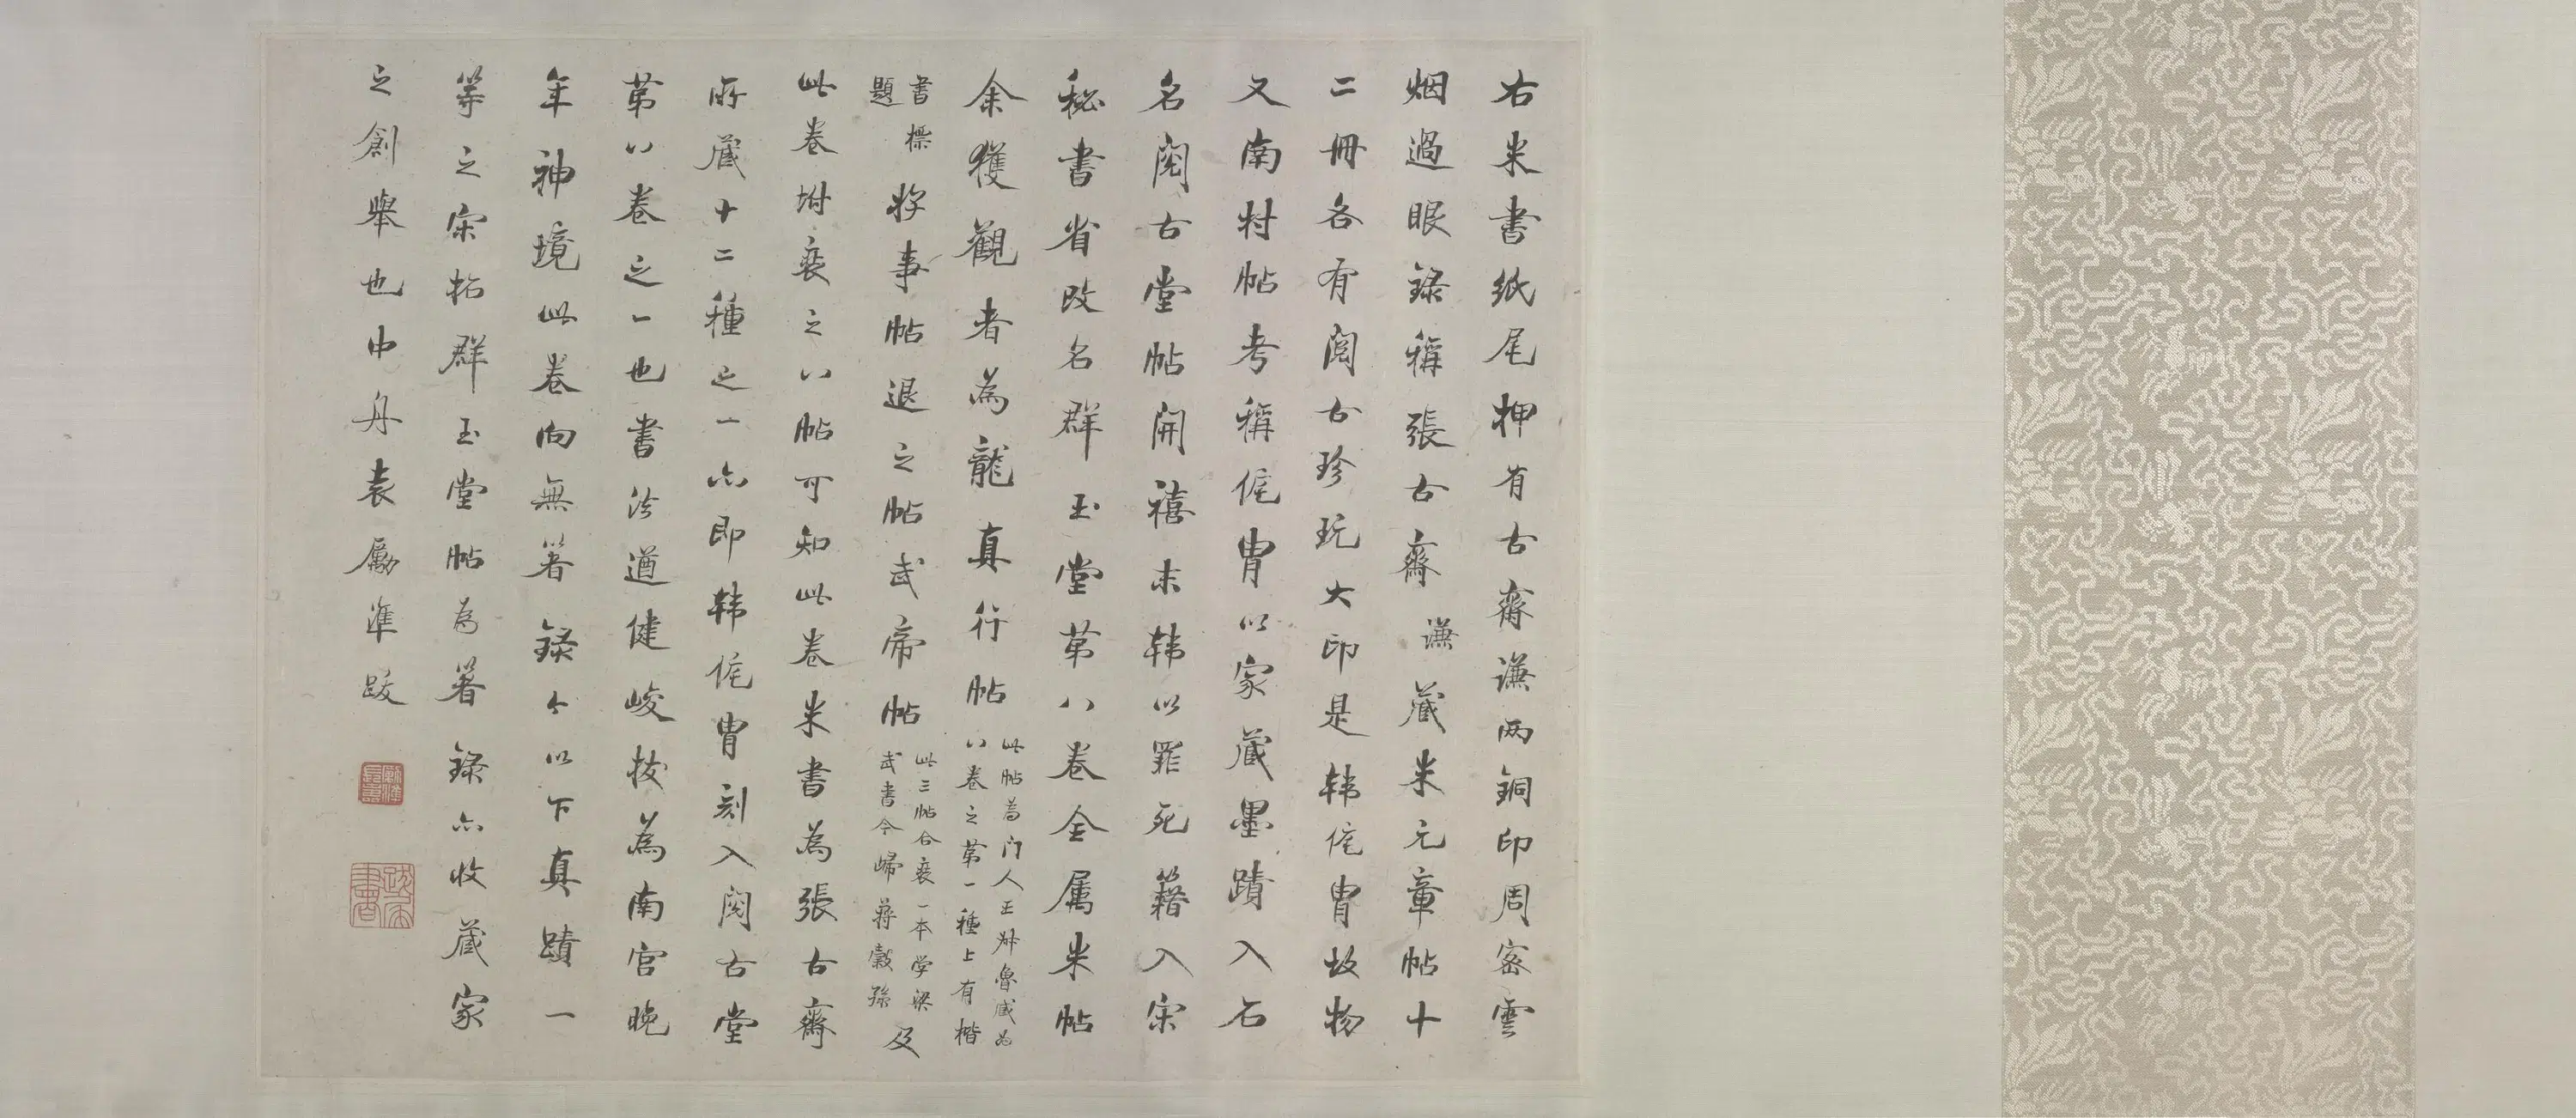 右米書紙尾押有古齋謙兩銅印周密雲
烟過眼錄稱張古齋謙藏米元章帖十
二冊各有閱古珍玩大印是韩侂胄故物
又南村帖考稱侂胄以家藏墨蹟入石
名閱古堂帖開禧末韩以罪死籍入宋
秘書省改名群玉堂第八卷全属米帖
余獲觀者為龍真行帖
此帖為门人王
八卷之第一種上有楷
書標
題
将事帖退之帖武帝帖
此三帖合裝一本学梁
武書今歸蔣穀孫
及
此卷坿裝之八帖可知此卷米書為張古齋
所藏十二種之一亦即韩侂胄刻入閱古堂
第八卷之一也書法遒健峻拔為南宫晚
年神境此卷向無著錄今以下真蹟一
等之宋拓群玉堂帖為著錄亦收藏家
之創舉也中舟袁勵準跋